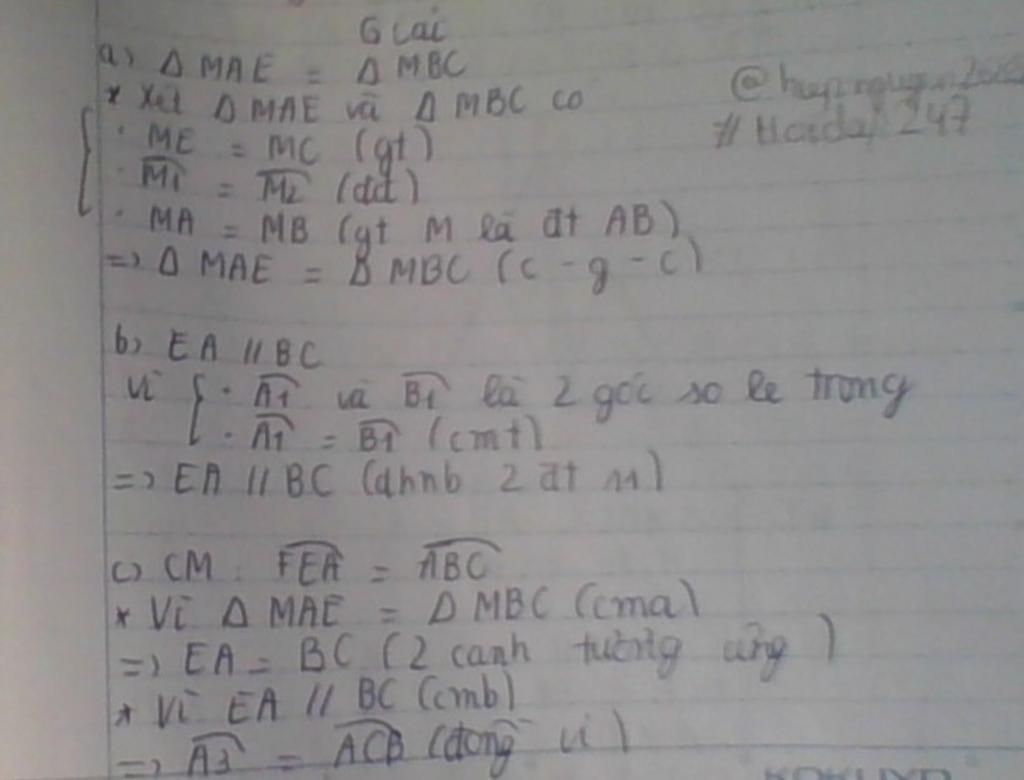 Giải
a) Δ MAE = Δ MBC
* Xét Δ MAE và Δ MBC có
· ME = MC (gt)
· M1 = M2 (dd)
· MA = MB (gt M là đt AB)
=> Δ MAE = Δ MBC (c - g - c)
b) EA // BC
Vì { · A1 và B1 là 2 góc so le trong
· A1 = B1 (cmt)
=> EA // BC (dhnb 2 đt //)
c) CM : FEA = ABC
* Vì Δ MAE = Δ MBC (cma)
=> EA = BC (2 cạnh tương ứng)
* Vì EA // BC (cmb)
=> A3 = ACB (đồng vị)
# 247
KOKUYO